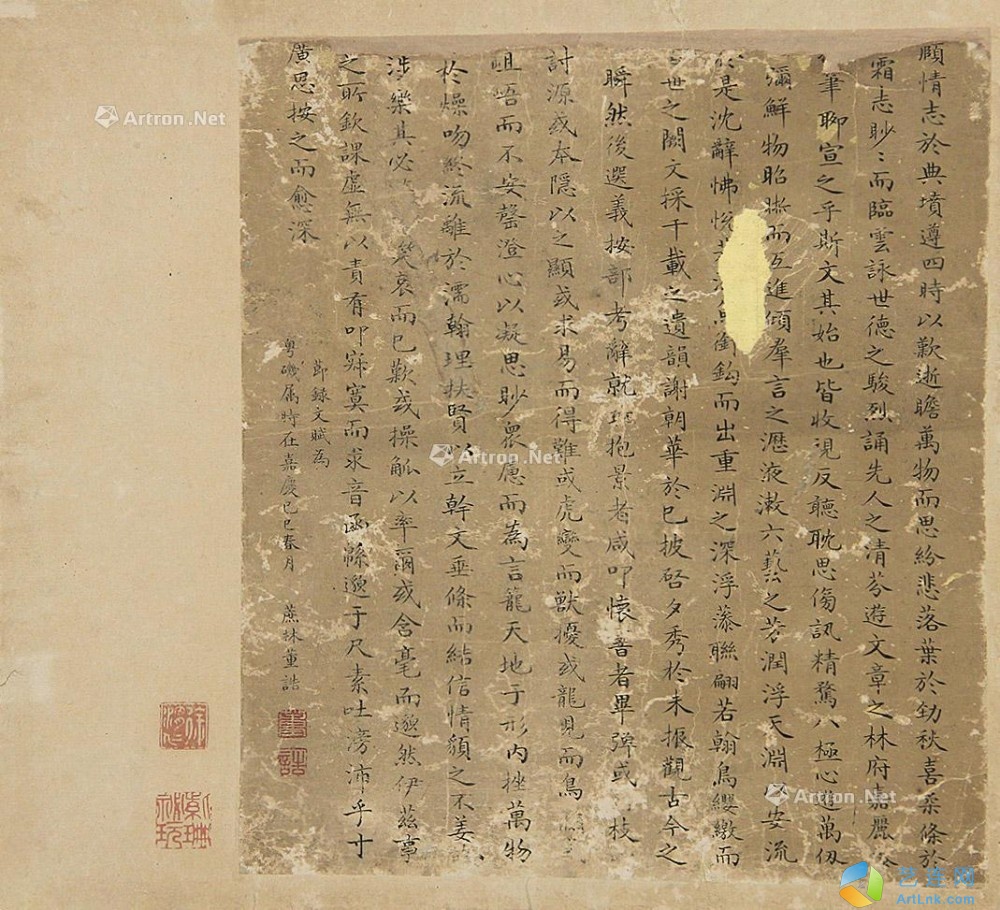 頤情志於典墳遵四時以歎逝瞻萬物而思紛悲落葉於勁秋喜柔條於
霜志眇〻而臨雲詠世德之駿烈誦先人之清芬遊文章之林府嘉麗
筆聊宣之乎斯文其始也皆收視反聽耽思傍訊精騖八極心遊萬仞
彌鮮物昭晣而互進傾羣言之瀝液漱六藝之芳潤浮天淵安流
於是沈辭怫悅若魚銜鉤而出重淵之深浮藻聯翩若翰鳥纓繳而
世之闕文採千載之遺韻謝朝華於已披啓夕秀於未振觀古今之
瞬然後選義按部考辭就班抱景者咸叩懷音者畢彈或枝
討源或本隱以之顯或求易而得難或虎變而獸擾或龍見而鳥
岨峿而不安罄澄心以凝思眇衆慮而為言籠天地于形內挫萬物
於燥吻終流離於濡翰理扶質以立幹文垂條而結信情貌之不差
涉樂其必笑哀而已歎或操觚以率爾或含毫而邈然伊茲事
之所欽課虛無以責有叩寂寞而求音函緜邈于尺素吐滂沛乎寸
廣思按之而愈深
節録文賦為
粵磯属時在嘉慶己巳春月 蔗林董誥
董
誥
Artron.Net
Artron.Net
Artron.Net
Artron.Net
艺连网
ArtLnk.com